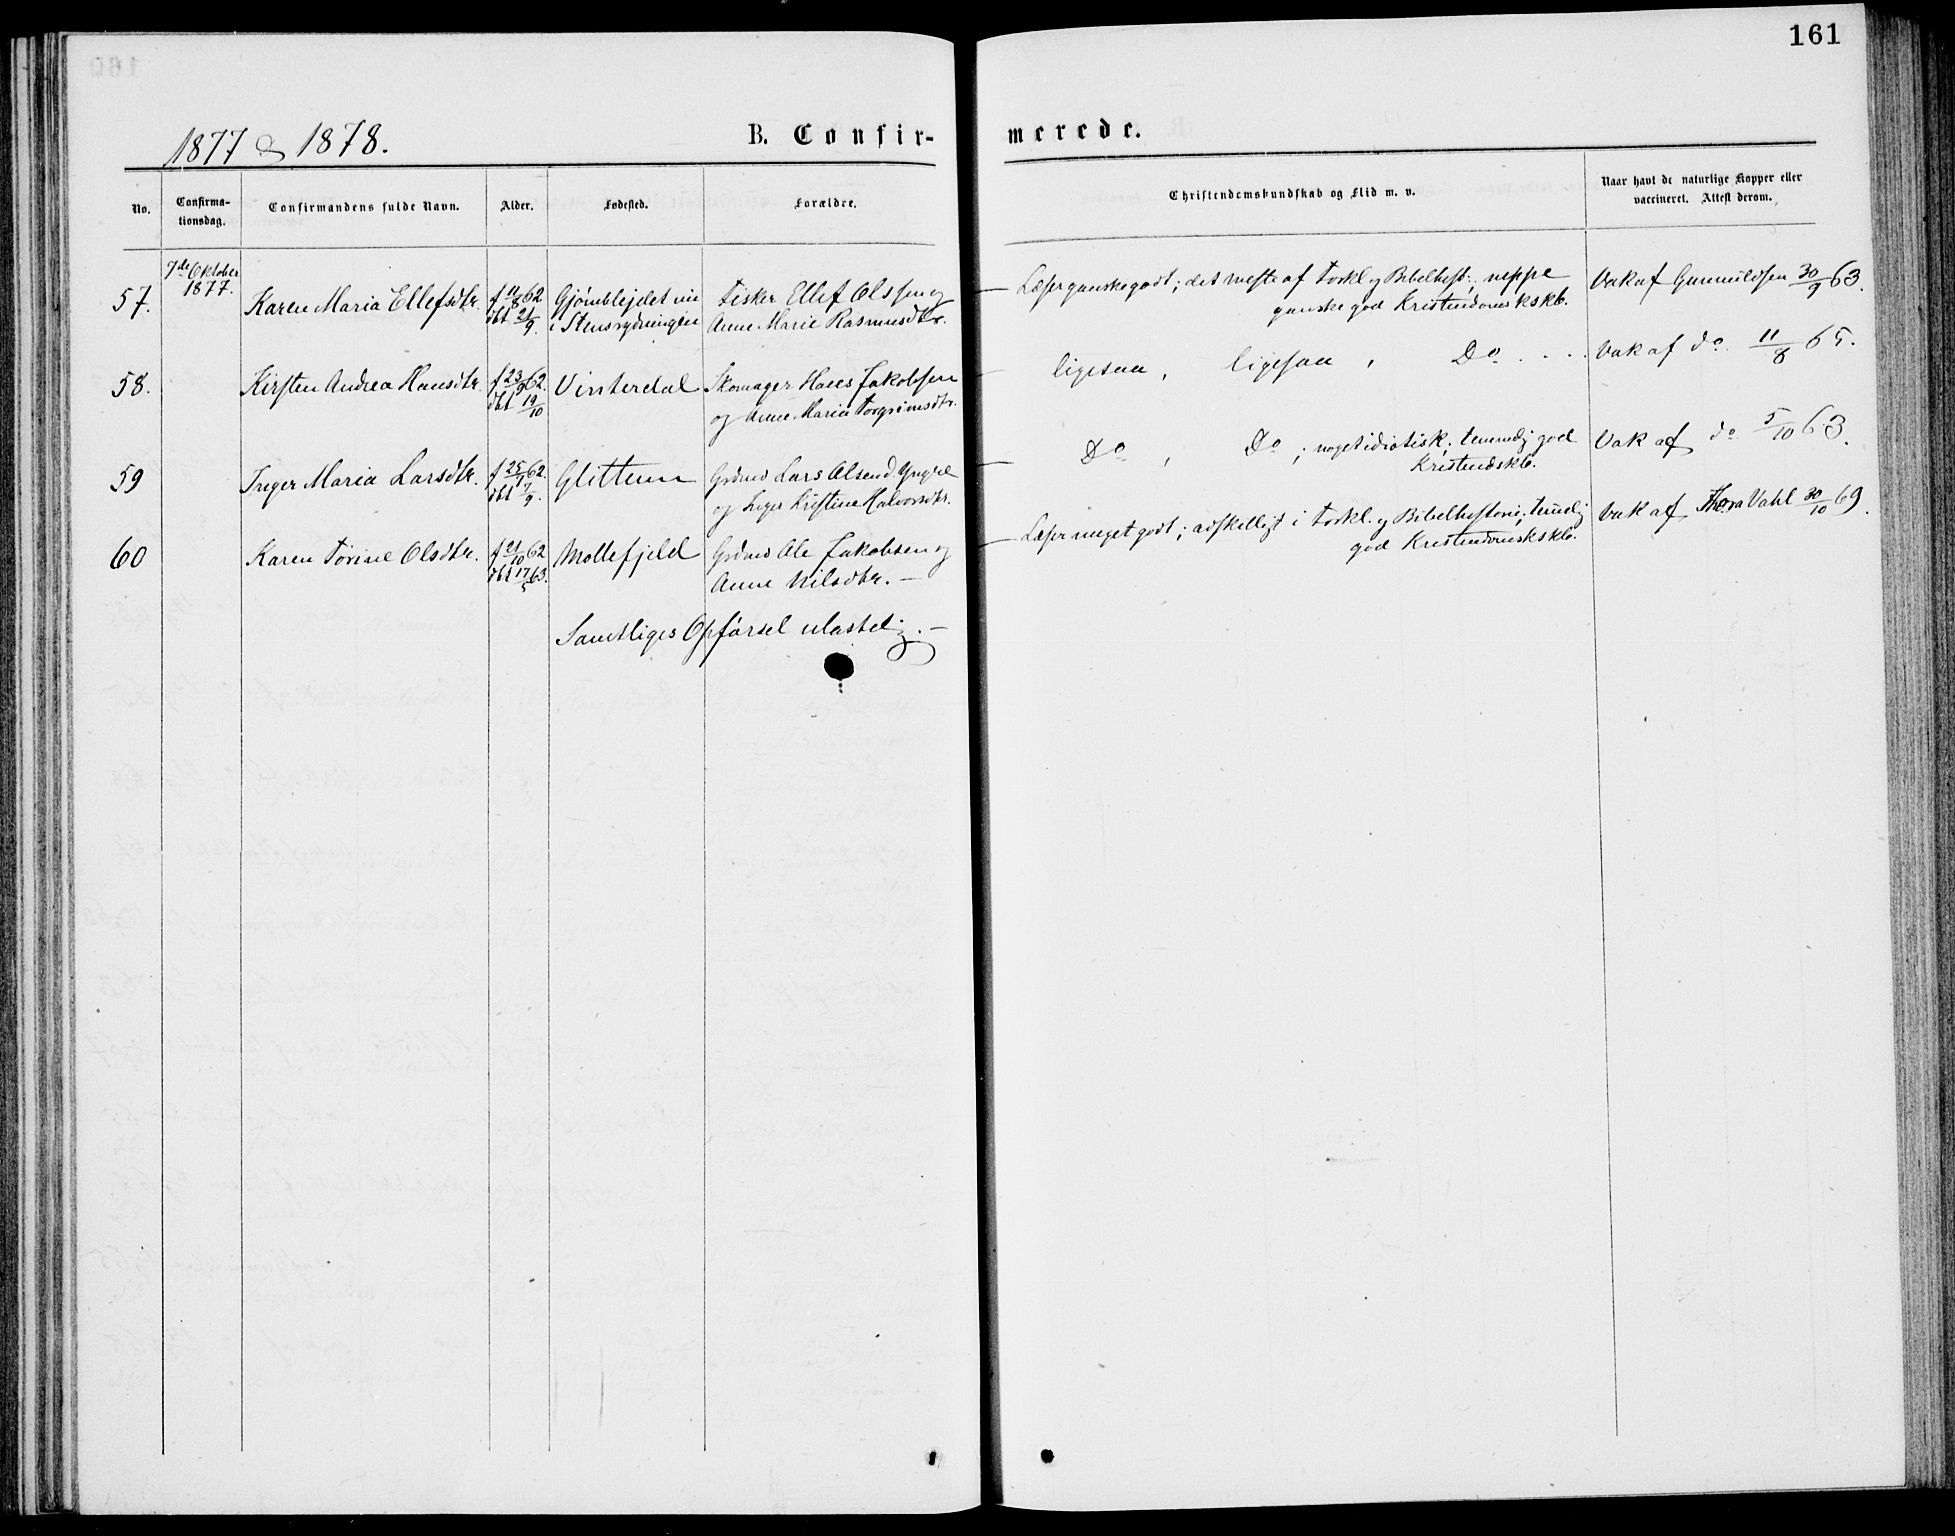 161
1877 & 1878.
B. Confir-
merede.
No.
Confirma-
tionsdag.
Confirmandens fulde Navn.
Alder.
Fødested.
Forældre.
Christendomskundskab og Flid m. v.
Naar havt de naturlige Kopper eller
vaccineret. Attest derom.
7de Oktober
1877.
57.
Karen Maria Ellefsdtr.
f 11/8 62
dbt 21/9.
Gjömblejdet nu
i Stensrydningen
Fisker Ellef Olssen og
Anne Marie Rasmusdtr.
Læser ganske godt; det meste af Forkl. og Bibelhist.; neppe
ganske god Kristendomskskb.
Vak af Gunnuldsen 30/9 63.
58.
Kirsten Andrea Hansdtr.
f 23/9 62.
dbt 19/10
Vinterdal
Skomager Hans Jakobsen
og Anne Maria Torgrimsdtr.
ligesaa, ligesaa, Do
Vak af do. 11/8 65.
59
Inger Maria Larsdtr.
f 25/7 62
dbt 7/9.
Glittum
Grdmd Lars Olsen d. Yngre
og Inger Kristine Halvorsdtr.
Do, Do; noget idiotisk; temmelig god
Kristendskb.
Vak af do. 5/10 63.
60
Karen Torine Olsdtr.
f 21/10 62
dbt 17/5 63.
Mollefjeld
Grdmd Ole Jakobsen og
Anne Nilsdtr. —
Læser meget godt; adskilligt i Forkl. og Bibelhistorie; temlig
god Kristendomskskb.
Vak af Thora Vahl 30/10 69.
Samtliges Opförsel ulastelig. —